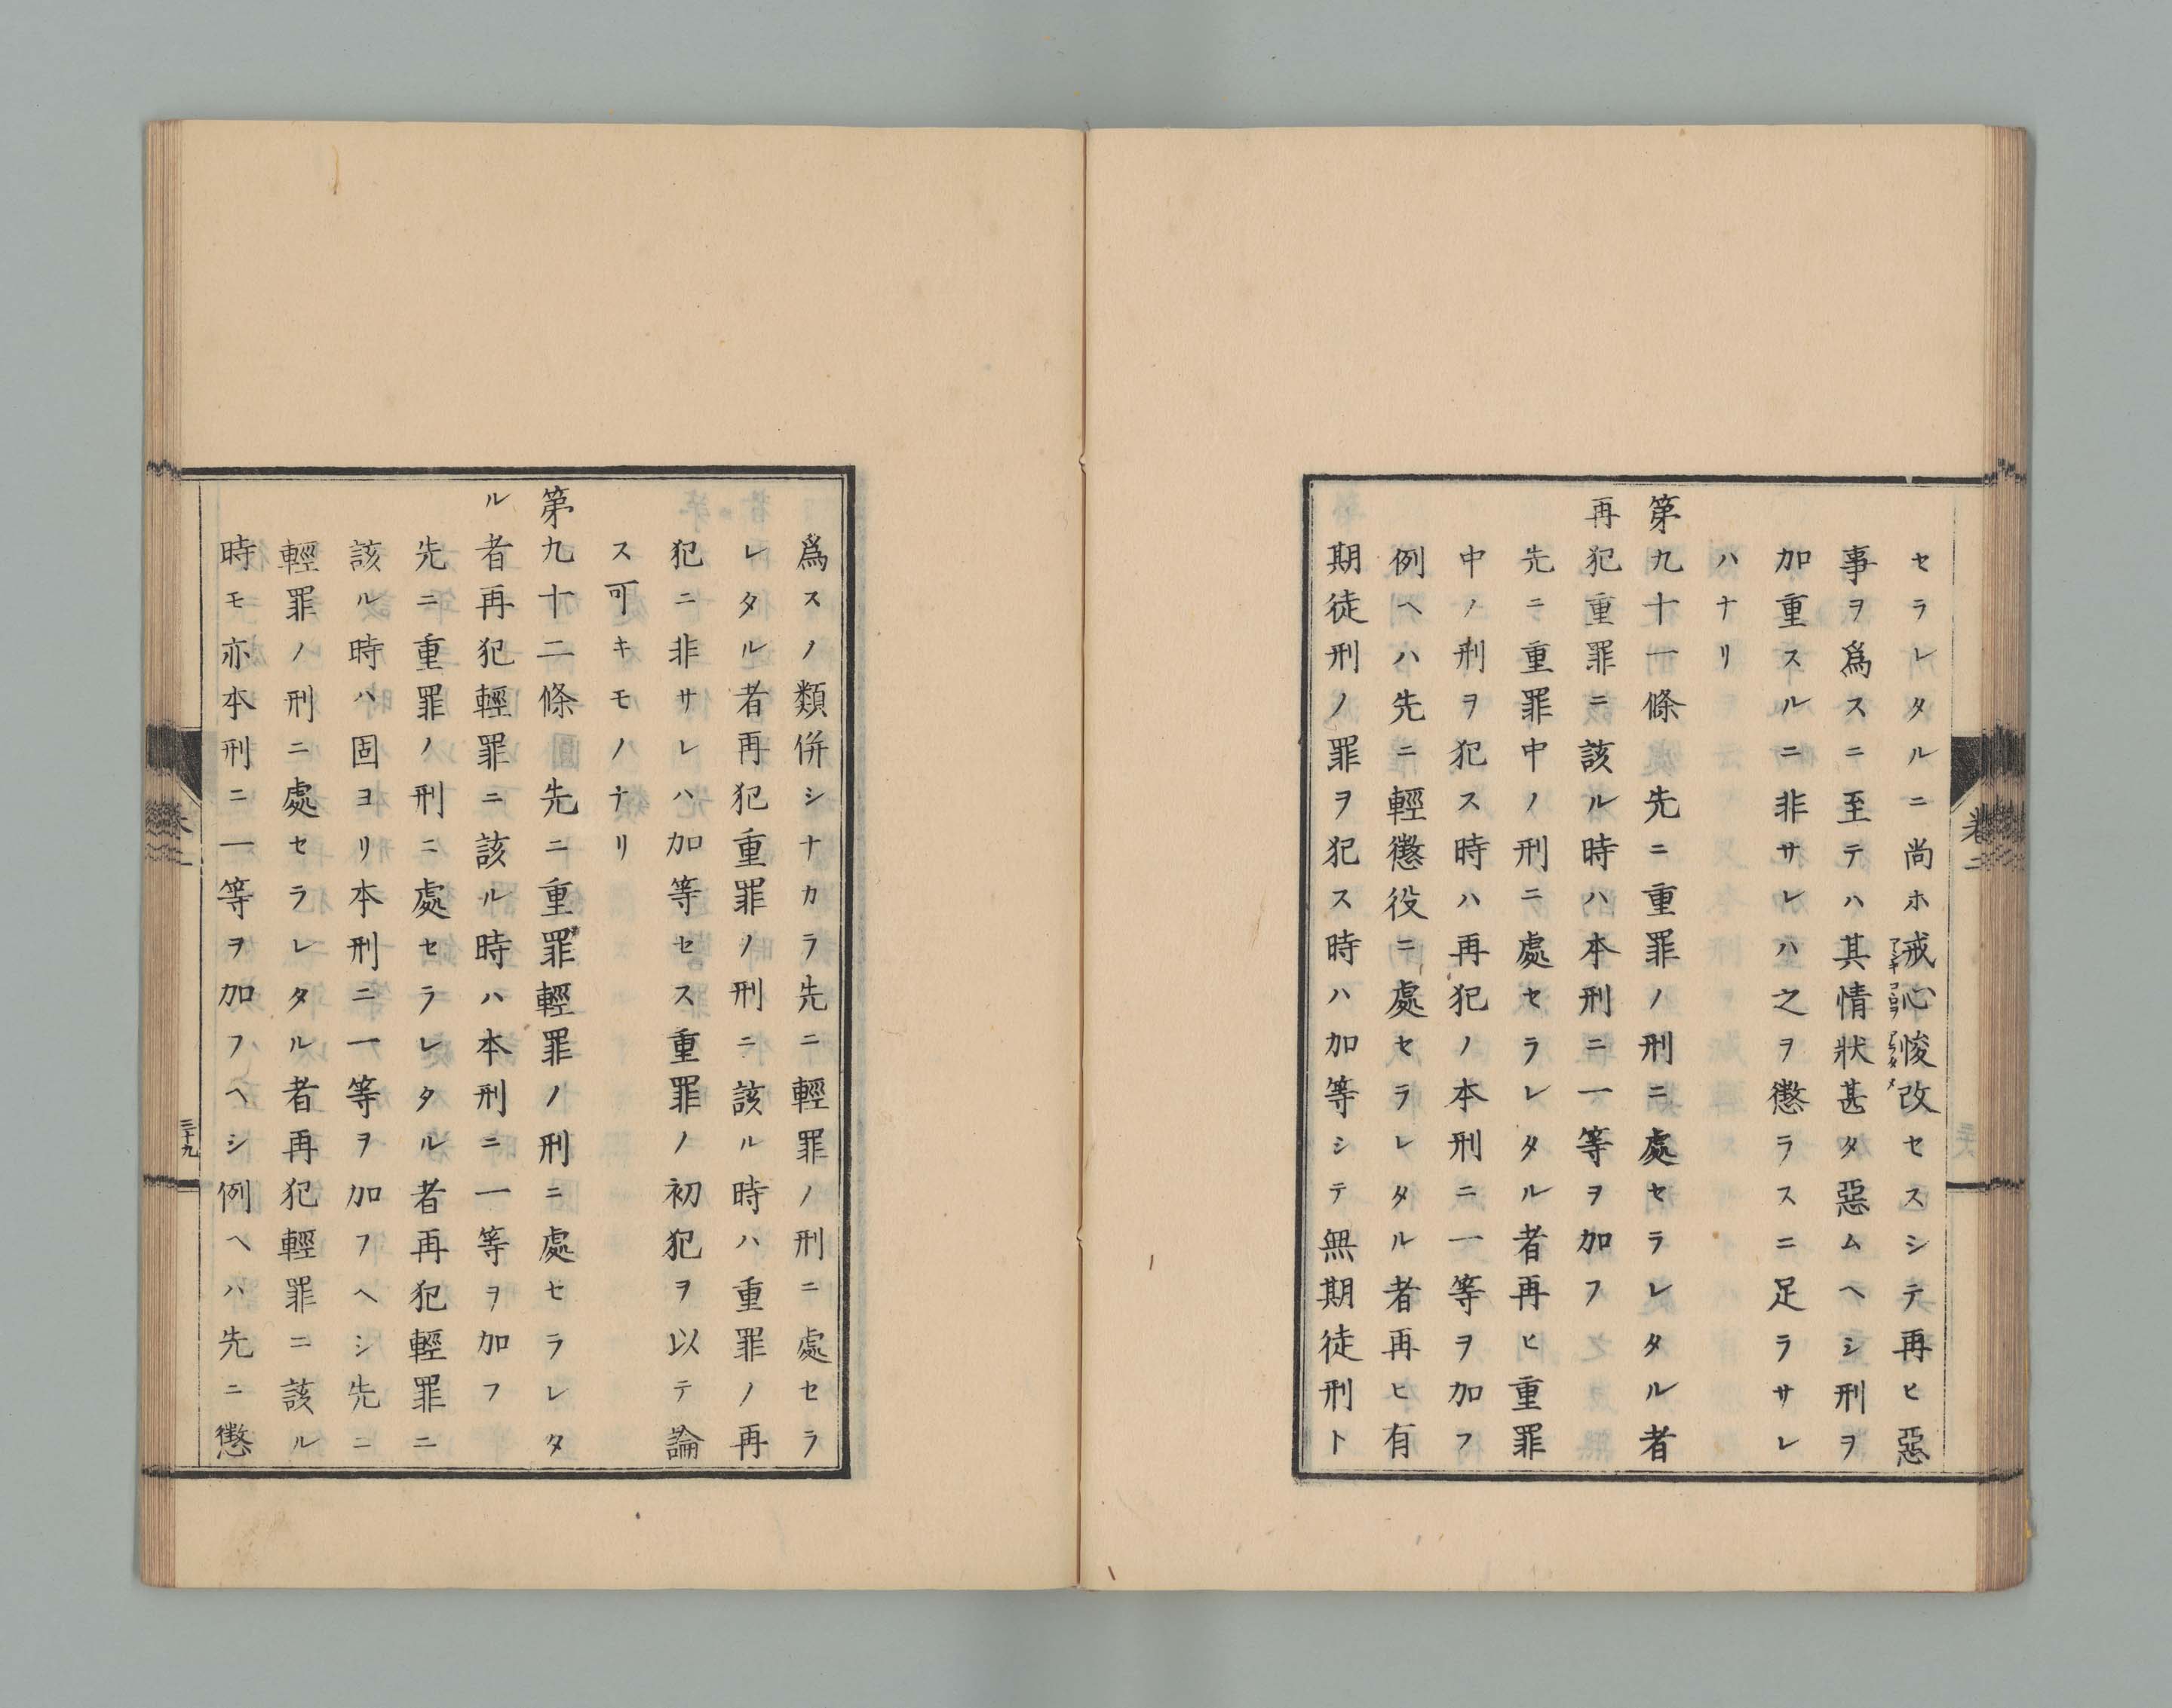 セラレタルニ尚ホ戒心悛改セスシテ再ヒ惡
事ヲ爲スニ至テハ其情狀甚タ惡ムヘシ刑ヲ
加重スルニ非サレハ之ヲ懲ラスニ足ラサレ
ハナリ
第九十一條先ニ重罪ノ刑ニ處セラレタル者
再犯重罪ニ該ル時ハ本刑ニ一等ヲ加フ
先ニ重罪中ノ刑ニ處セラレタル者再ヒ重罪
中ノ刑ヲ犯ス時ハ再犯ノ本刑ニ一等ヲ加フ
例ヘハ先ニ輕懲役ニ處セラレタル者再ヒ有
期徒刑ノ罪ヲ犯ス時ハ加等シテ無期徒刑ト
卷二
爲スノ類併シナカラ先ニ輕罪ノ刑ニ處セラ
レタル者再犯重罪ノ刑ニ該ル時ハ重罪ノ再
犯ニ非サレハ加等セス重罪ノ初犯ヲ以テ論
ス可キモノナリ
第九十二條先ニ重罪輕罪ノ刑ニ處セラレタ
ル者再犯輕罪ニ該ル時ハ本刑ニ一等ヲ加フ
先ニ重罪ノ刑ニ處セラレタル者再犯輕罪ニ
該ル時ハ固ヨリ本刑ニ一等ヲ加フヘシ先ニ
輕罪ノ刑ニ處セラレタル者再犯輕罪ニ該ル
時モ亦本刑ニ一等ヲ加フヘシ例ヘハ先ニ懲
三十九